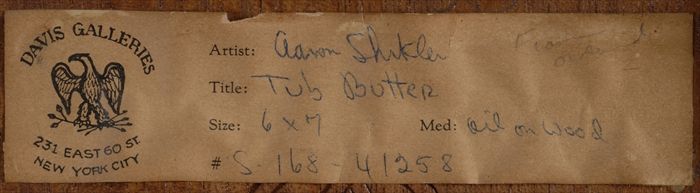 DAVIS GALLERIES
231 EAST 60 ST.
NEW YORK CITY
Artist: Aaron Shikler
Title: Tub Butter
Size: 6 x 7 Med: oil on wood
# S-168-41258